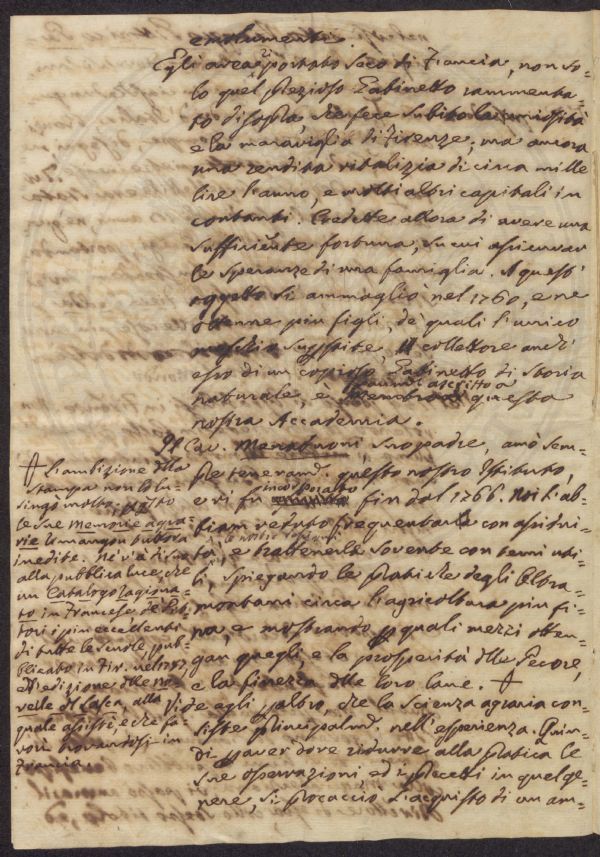 emolumento.
Egli avea portato seco di Francia, non so-
lo quel prezioso Gabinetto rammenta-
to di sopra che fece subito la curiosità
e la maraviglia di Firenze; ma ancora
una rendita vitalizia di circa mille
lire l'anno, e molti altri capitali in
contanti. Credette allora di avere una
sufficiente fortuna, su cui assicurar
le speranze di una famiglia. A quest'
oggetto si ammogliò nel 1760, e ne
ottenne piu figli, de' quali l'unico
maschio superstite, collettore anch'
esso di un copioso Gabinetto di storia
naturale, è ascritto a questa
nostra Accademia.
Il Cav. suo padre, amò sem-
pre teneramte questo nostro Istituto,
e vi fu incorporato fin dal 1766. Noi l'ab-
biam veduto frequentarlo con assidui-
tà, e trattenerla sovente con temi uti-
li, spiegando le pratiche degli Oltra-
montani circa l'agricoltura piu fi-
na, e mostrando p quali mezzi otten-
gan quegli, e la prosperità delle Pecore,
e la finezza delle loro lane.
Vide egli p altro, che la scienza agraria con-
siste principalmte nell'esperienza. Quin-
di p aver dove ridurre alla pratica le
sue osservazioni ed i precetti in quel ge-
nere si procacciò l'acquisto di un am-
L'ambizione della
stampa non lo lu-
singò molto, p
le sue Memorie agra-
rie rimangon tuttora
inedite. Nè v'è di suo
alla pubblica luce, che
un Catalogo ragiona-
to in Francese de Pit-
tori i piu eccellenti
di tutte le scuole, pub-
blicato in Fir. nel
e l'edizione delle No-
velle del Lasca, alla
quale assistè, e che fa-
vorì trovandosi in
Francia.